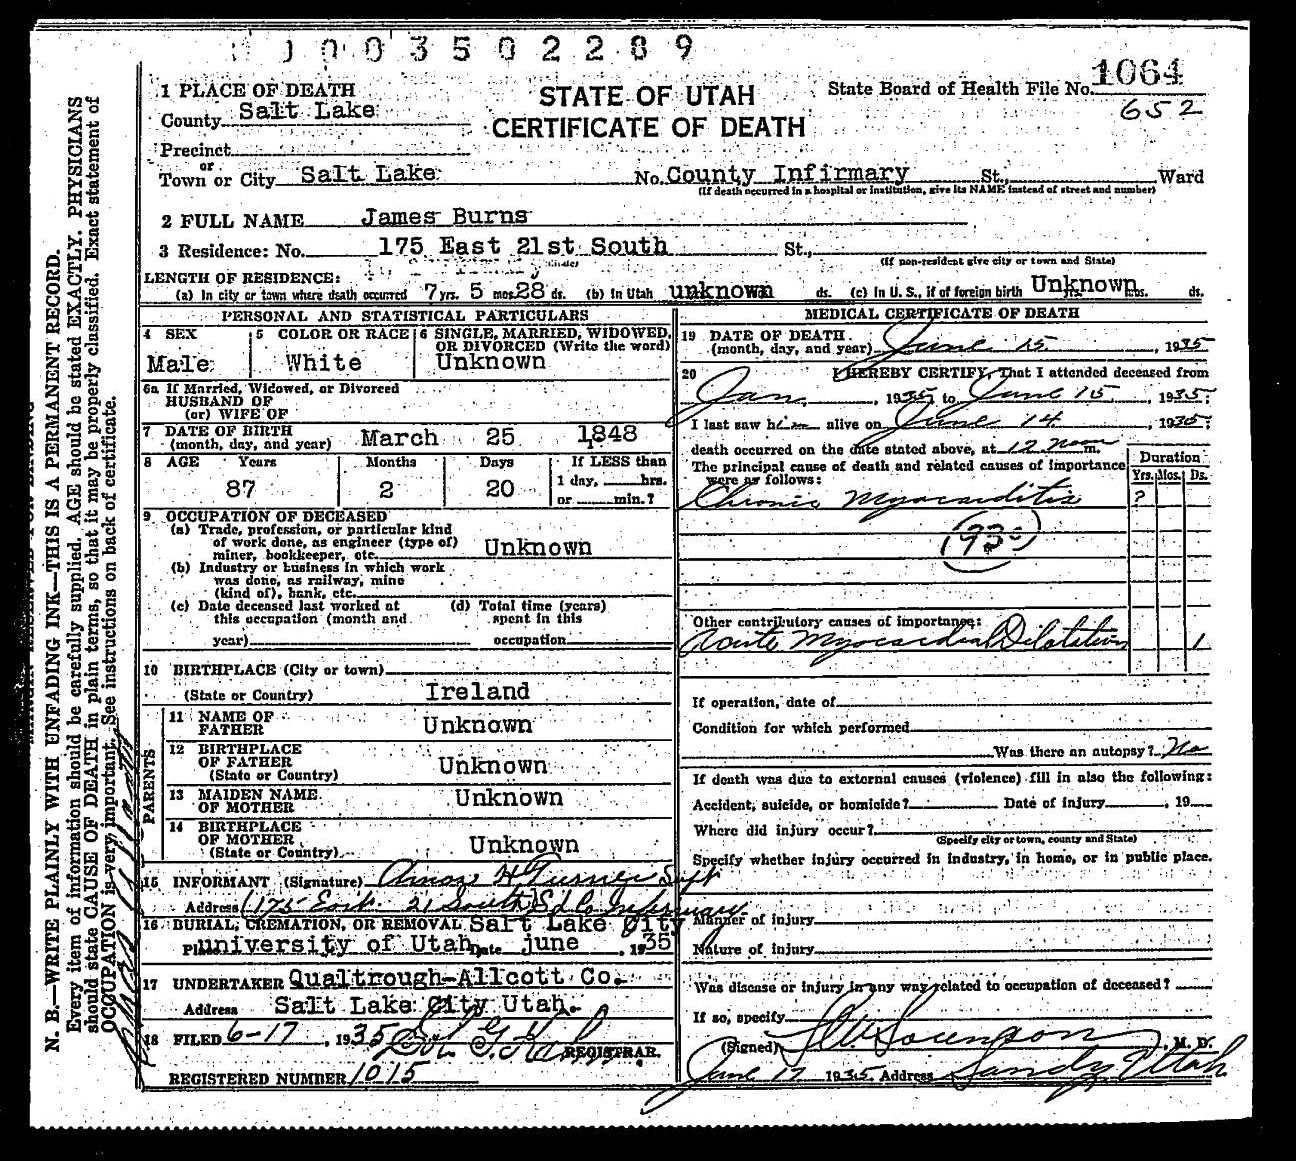 0003502289
1064
652
State Board of Health File No.
STATE OF UTAH
CERTIFICATE OF DEATH
1 PLACE OF DEATH
County Salt Lake
Precinct
or
Town or City Salt Lake No. County Infirmary St., Ward
(If death occurred in a hospital or institution, give its NAME instead of street and number)
2 FULL NAME James Burns
3 Residence: No. 175 East 21st South St.,
(If non-resident give city or town and State)
LENGTH OF RESIDENCE:
(a) In city or town where death occurred 7 yrs. 5 mos. 28 ds. (b) In Utah unknown ds. (c) In U. S., if of foreign birth Unknown yrs. mos. ds.
PERSONAL AND STATISTICAL PARTICULARS
4 SEX Male
5 COLOR OR RACE White
6 SINGLE, MARRIED, WIDOWED, OR DIVORCED (Write the word)
Unknown
6a If Married, Widowed, or Divorced
HUSBAND OF
(or) WIFE OF
7 DATE OF BIRTH
(month, day, and year) March 25 1848
8 AGE Years Months Days If LESS than
87 2 20 1 day, hrs.
or min.?
9 OCCUPATION OF DECEASED
(a) Trade, profession, or particular kind
of work done, as engineer (type of)
miner, bookkeeper, etc. Unknown
(b) Industry or business in which work
was done, as railway, mine
(kind of), bank, etc.
(c) Date deceased last worked at (d) Total time (years)
this occupation (month and spent in this
year) occupation
10 BIRTHPLACE (City or town)
(State or Country) Ireland
PARENTS
11 NAME OF
FATHER Unknown
12 BIRTHPLACE
OF FATHER
(State or Country) Unknown
13 MAIDEN NAME
OF MOTHER Unknown
14 BIRTHPLACE
OF MOTHER
(State or Country) Unknown
15 INFORMANT (Signature) Amos H Turner Supt
Address 175 East 21 South S L Co Infirmary
16 BURIAL, CREMATION, OR REMOVAL Salt Lake City
Place university of Utah Date june , 1935
17 UNDERTAKER Qualtrough-Allcott Co.
Address Salt Lake City Utah.
18 FILED 6-17 , 1935
REGISTRAR.
REGISTERED NUMBER 1015
MEDICAL CERTIFICATE OF DEATH
19 DATE OF DEATH
(month, day, and year) June 15 , 1935
20 I HEREBY CERTIFY, That I attended deceased from
Jan , 1935, to June 15 , 1935;
I last saw him alive on June 14 , 1935;
death occurred on the date stated above, at 12 noon m.
The principal cause of death and related causes of importance
were as follows:
Duration
Yrs. Mos. Ds.
Chronic Myocarditis ?
(93c)
Other contributory causes of importance:
Acute Myocardial Dilatation 1
If operation, date of
Condition for which performed
Was there an autopsy? No
If death was due to external causes (violence) fill in also the following:
Accident, suicide, or homicide? Date of injury , 19
Where did injury occur?
(Specify city or town, county and State)
Specify whether injury occurred in industry, in home, or in public place.
Manner of injury
Nature of injury
Was disease or injury in any way related to occupation of deceased?
If so, specify
(Signed) Sorenson , M. D.
June 17 1935 Address Sandy, Utah
N. B.—WRITE PLAINLY WITH UNFADING INK—THIS IS A PERMANENT RECORD.
Every item of information should be carefully supplied. AGE should be stated EXACTLY. PHYSICIANS
should state CAUSE OF DEATH in plain terms, so that it may be properly classified. Exact statement of
OCCUPATION is very important. See instructions on back of certificate.